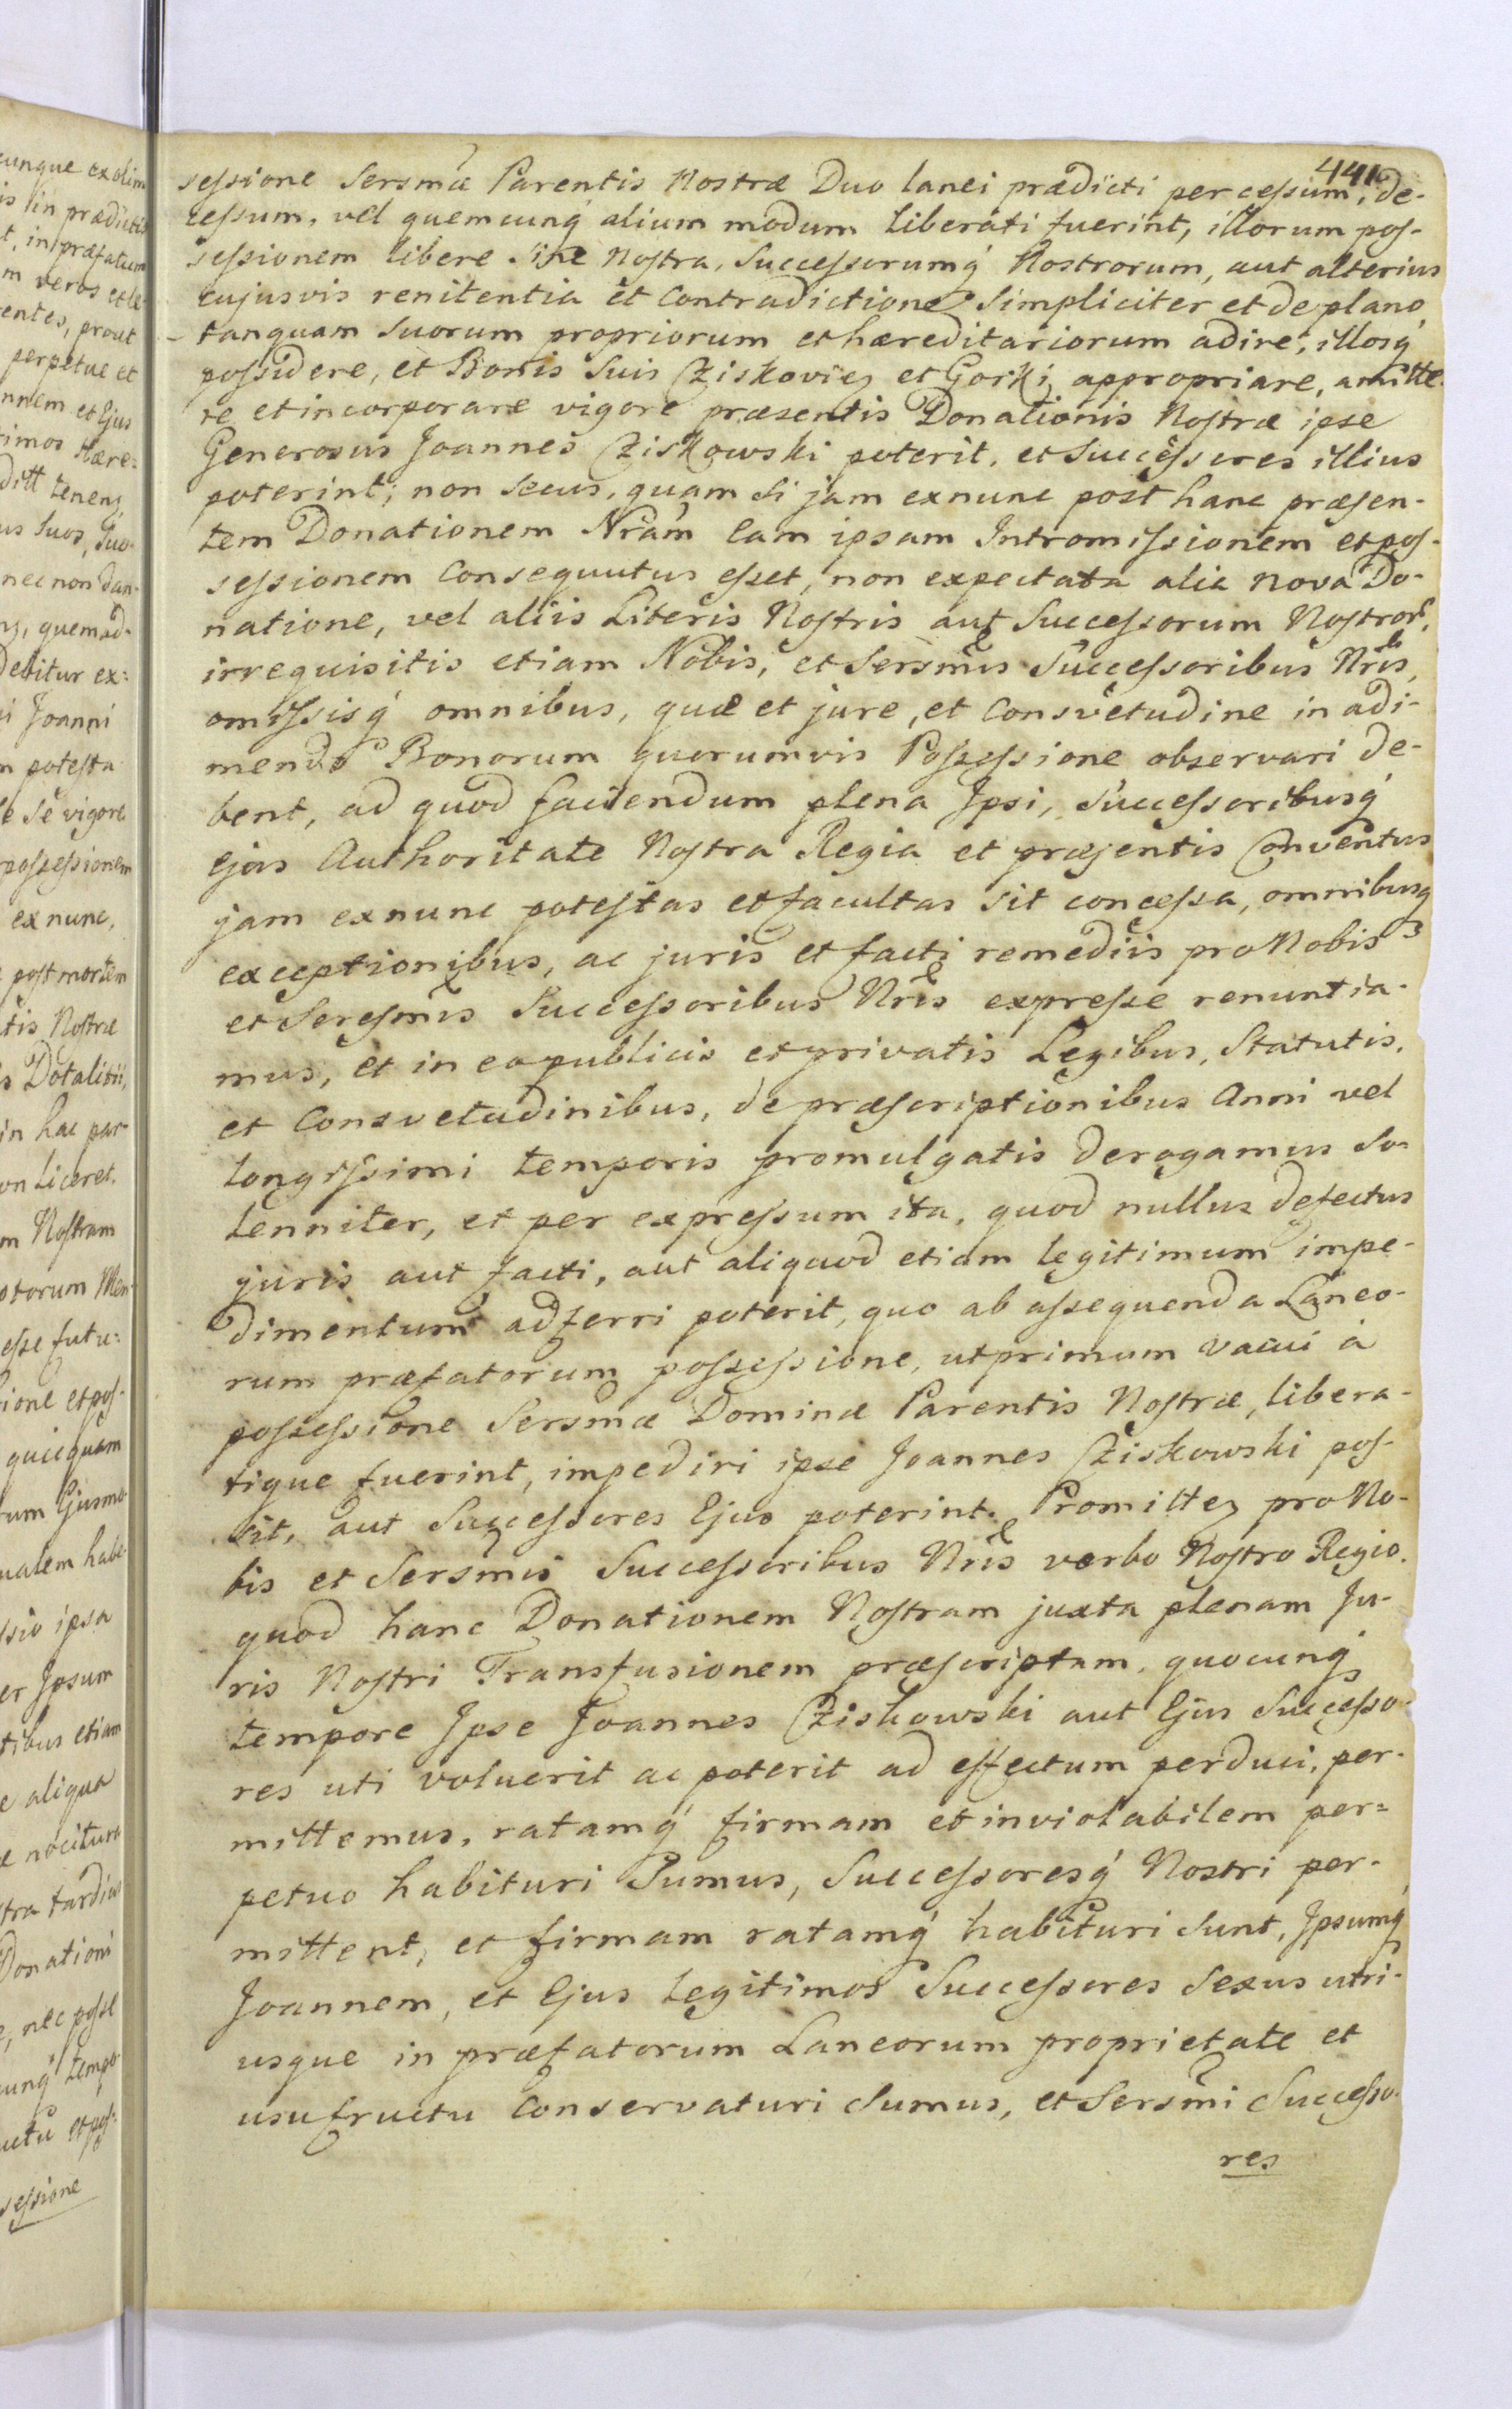 441
sessione Sersmæ Parentis Nostræ Duo lanei prædicti per cessum, de-
cessum, vel quemcunq́ alium modum liberati fuerint, illorum pos-
sessionem libere sine Nostra, Successorumq́ Nostrorum, aut alterius
cujusvis renitentia et Contradictione simpliciter et de plano
tanquam Suorum propriorum et hæreditariorum adire, illosq́
possidere, et Bonis Suis Cziskoviez et Gorki appropriare, amitte-
re et incorporare vigore præsentis Donationis Nostræ ipse
Generosus Joannes Cziskowski poterit, et Successores illius
poterint; non secus, quam si jam exnunc post hanc præsen-
tem Donationem Nram Eam ipsam Intromissionem et pos-
sessionem Consequutus esset, non expectata alia nova Do-
natione, vel aliis Literis Nostris aut Successorum Nostror,
irrequisitis etiam Nobis, et Sersmis Successoribus Nris,
omissisq́ omnibus, quæ et jure, et Consvetudine in adi-
menda Bonorum quorumvis Possessione observari de-
bent, ad quod faciendum plena Ipsi, Successoribusq́
Ejus Authoritate Nostra Regia et præsentis Conventus
jam exnunc potestas et facultas sit concessa, omnibusq́
exceptionibus, ac juris et facti remediis pro Nobis
et Seresmis Successoribus Nris expresse renuntia-
mus, et in eo publicis et privatis Legibus, Statutis,
et Consvetudinibus, de præscriptionibus Anni vel
longissimi temporis promulgatis derogamus So-
lenniter, et per expressum ita, quod nullus defectus
juris aut facti, aut aliquod etiam legitimum impe-
dimentum adferri poterit, quo ab assequenda Laneo-
rum præfatorum possessione, utprimum vacui à
possessione Sersmæ Dominæ Parentis Nostræ, libera-
tique fuerint, impediri ipse Joannes Cziskowski pos-
sit, aut Successores Ejus poterint. Promittez pro No-
bis et Sersmis Successoribus Nris verbo Nostro Regio,
quod hanc Donationem Nostram juxta plenam Ju-
ris Nostri Transfusionem præscriptam, quocunq́
tempore Ipse Joannes Cziskowski aut Ejus Successo-
res uti voluerit ac poterit ad effectum perduci, per-
mittemus, ratamq́ firmam et inviolabilem per=
petuo habituri Sumus, Successoresq́ Nostri per-
mittent, et firmam ratamq́ habituri Sunt, Ipsumq́
Joannem, et Ejus Legitimos Successores Sexus utri-
usque in præfatorum Laneorum proprietate et
usufructu Conservaturi Sumus, et Sersmi Successo-
res